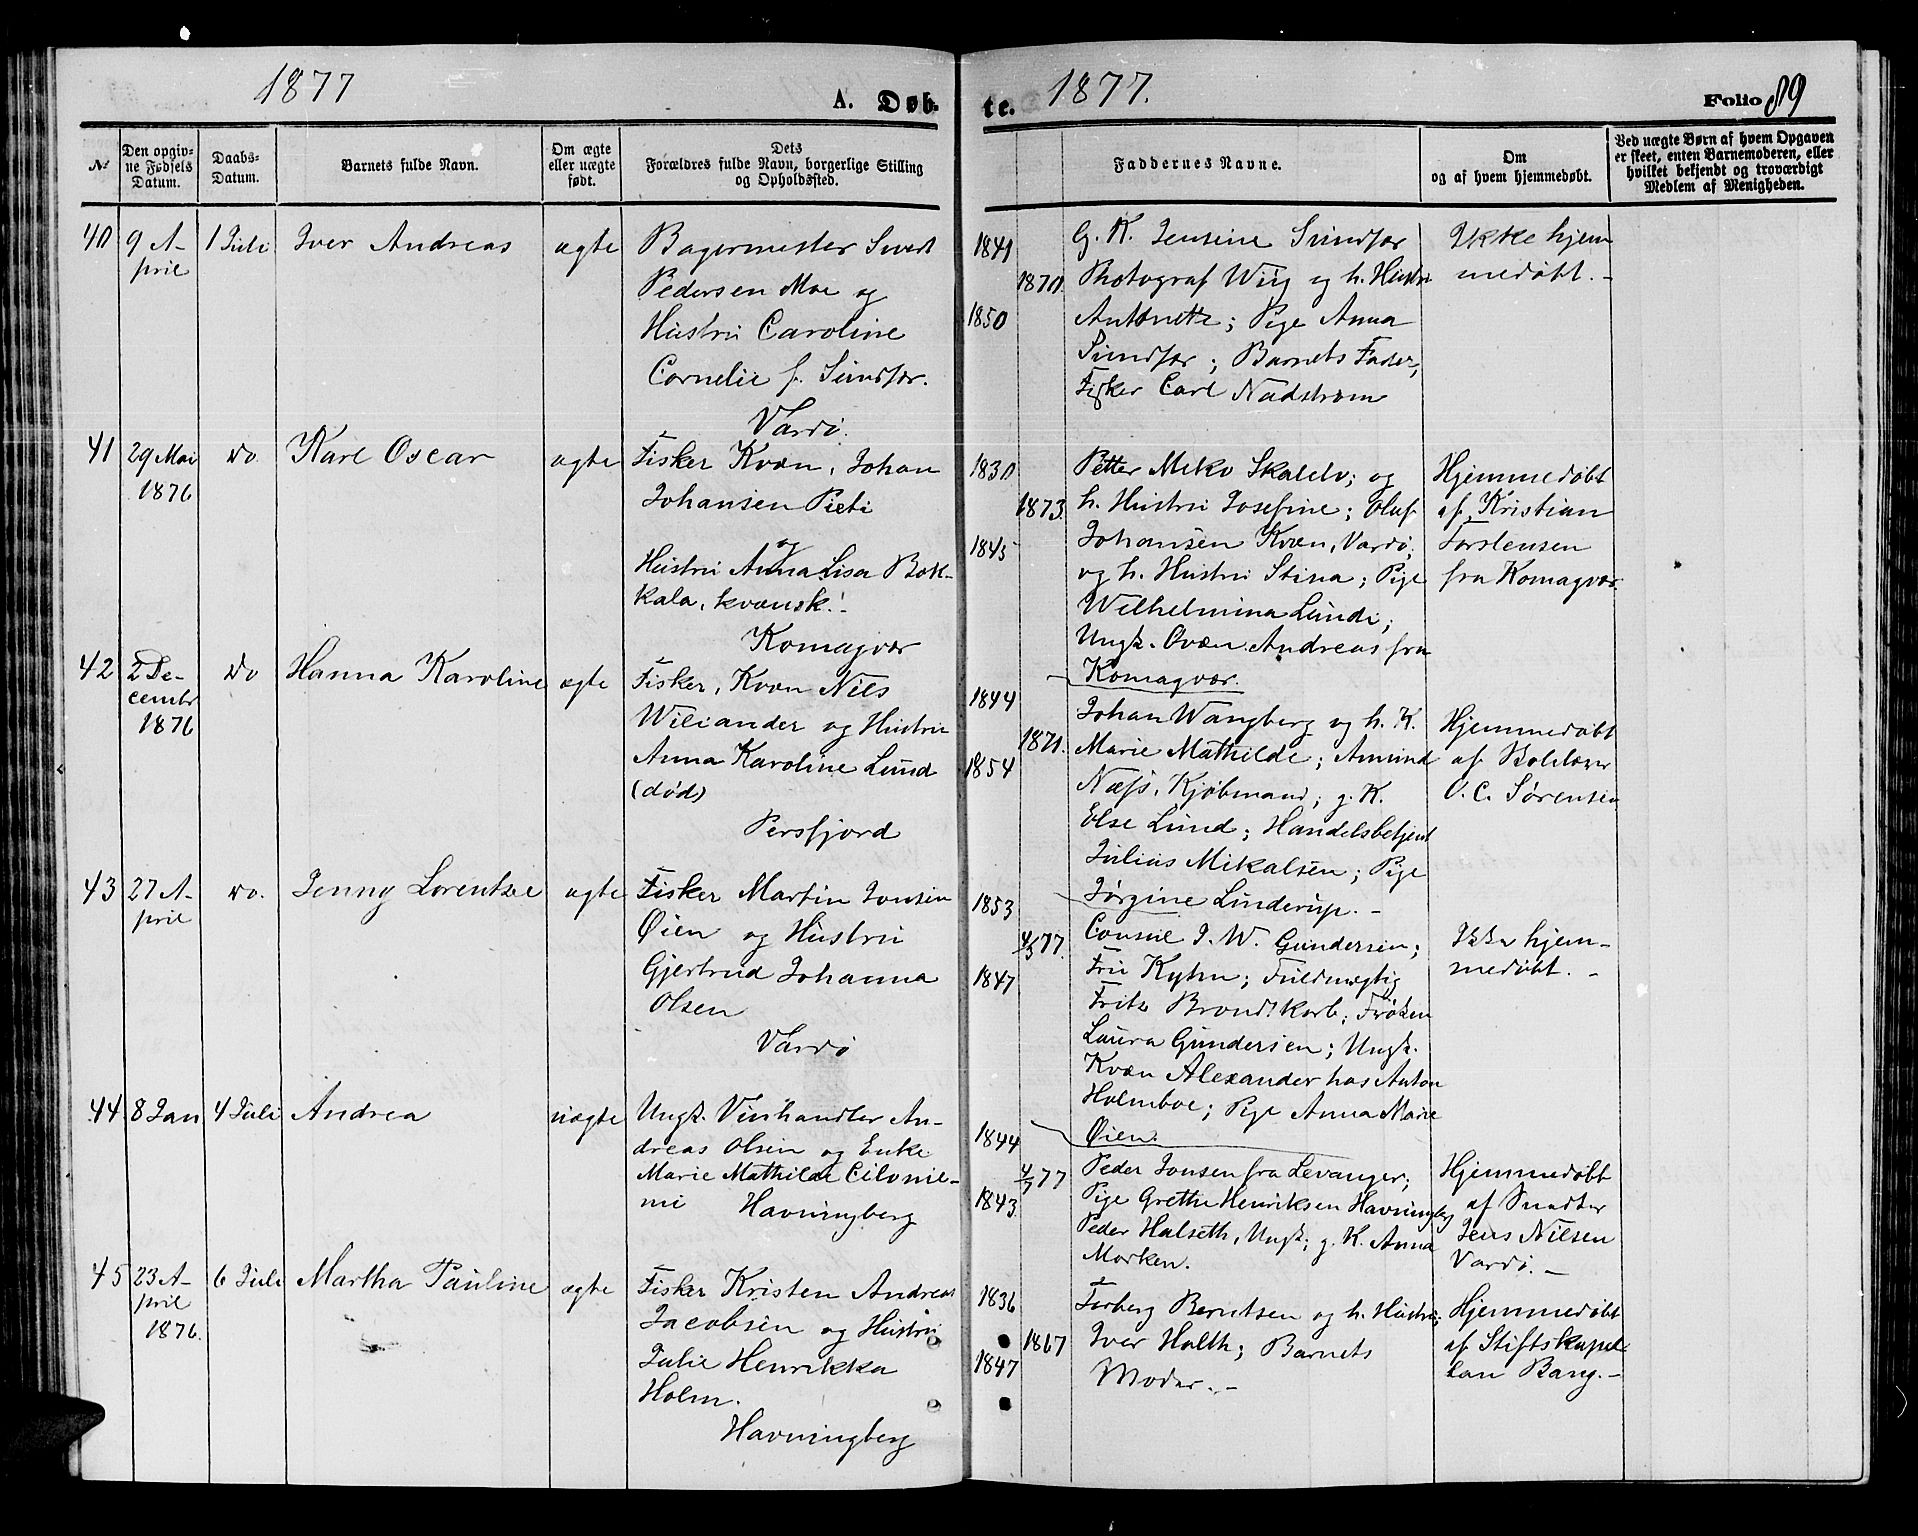 1877
A. Døb-
№
Den opgiv-
ne Fødsels
Datum.
Daabs-
Datum.
Barnets fulde Navn.
Om ægte
eller uægte
født.
Dets
Forældres fulde Navn, borgerlige Stilling
og Opholdssted.
40 9 A- 1 Juli Iver Andreas ægte Bagermester Sivert
pril
Pedersen Moe og
Hustru Caroline
Cornelie f. Sundfær.
Vardö.
41 29 Mai do Karl Oscar ægte Fisker Kvæn, Johan
1876
Johansen Pieti
og
Hustru Anna Lisa Bak-
kala, kvænsk.-
Komagvær
42 2 De- do Hanna Karoline ægte Fisker, Kvæn Nils
cembr
1876
Wiliander og Hustru
Anna Karoline Lund
(død)
Persfjord
43 27 A- do. Jenny Lorentze ægte Fisker Martin Jonsen
pril
Øien og Hustru
Gjertrud Johanna
Olsen
Vardö
44 8 Jan 4 Juli Andrea uægte Ungk. Vinhandler An-
dreas Olsen og Enke
Marie Mathilde Cilonie-
mi Havningberg
45 23 A- 6 Juli Martha Pauline ægte Fisker Kristen Andreas
pril
1876.
Jacobsen og Hustru
Julie Henrikka
Holm.
Havningberg
te. 1877. Folio 89
Faddernes Navne.
Om
og af hvem hjemmedøbt.
Ved uægte Børn af hvem Opgaven
er skeet, enten Barnemoderen, eller
hvilket bekjendt og troværdigt
Medlem af Menigheden.
1841 G. K. Jensine Sundfær Ikke hjem
1870. Photograf Wiig og h. Hustru medøbt. -
1850 Antonette; Pige Anna
Sundfær; Barnets Fader,
Fisker Carl Nadstrøm
1830 Petter Miko Skalelv; og Hjemmedøbt
1873. h. Hustru Josefine; Oluf af Kristian
1845 Johansen Kvæn, Vardö, Torstensen
og h. Hustru Stina; Pige fra Komagvær
Wilhelmina Lundi;
Ungk. Qvæn Andreas fra
Komagvær.
1844
Johan Wangberg og h. K. Hjemmedøbt
1871. Marie Mathilde; Amund af
1854 Næss, Kjøbmand; g. K. O. C. Sörensen
Else Lund; Handelsbetjent
Julius Mikalsen; Pige
1853 Jörgine Linderup. -
4/5 77. Consul J. W. Gundersen; Ikke hjem-
1847 Fru Kyhn; Fuldmægtig medøbt. -
Fritz Brondtkorb; Frøken
Laura Gundersen; Ungk.
Kvæn Alexander hos Anton
Holmboe; Pige Anna Marie
1844 Øien.
4/7 77 Peder Jonsen fra Levanger; Hjemmedøbt
1843 Pige Grethe Henriksen Havningberg af Snedker
Peder Halseth, Ungk; g. K. Anna Jens Nilsen
Morken. Vardö. -
1836 Torberg Berntsen og h. Hustru; Hjemmedøbt
1867 Iver Holth; Barnets af Stiftskapel
1847 Moder. - lan Bang. -